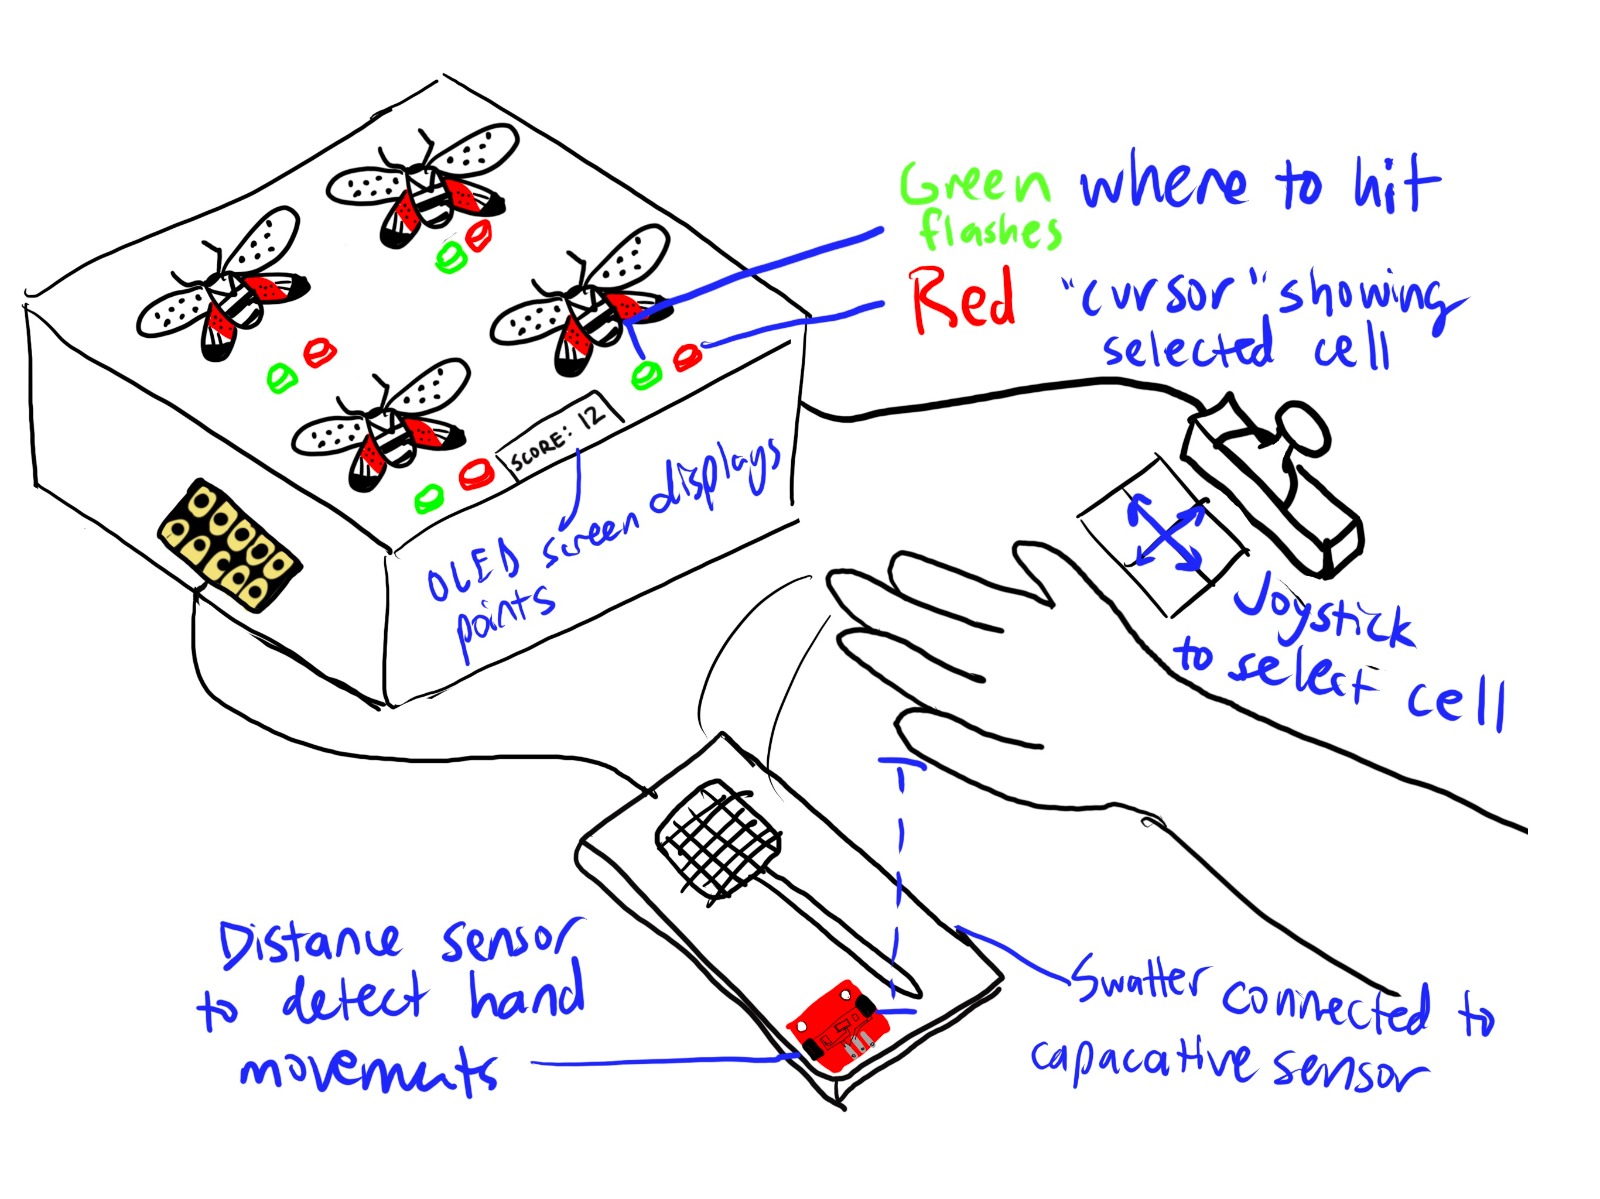 Green where to hit
flashes
Red "cursor" showing
selected cell
SCORE: 12
OLED screen displays
points
Joystick
to select cell
Distance sensor
to detect hand
movements
Swatter connected to
capacative sensor